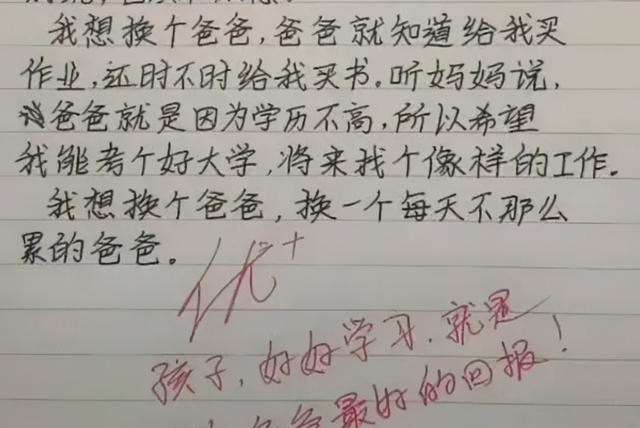 我想换个爸爸，爸爸就知道给我买
作业，还时不时给我买书。听妈妈说，
爸爸就是因为学历不高，所以希望
我能考个好大学，将来找个像样的工作。
我想换个爸爸，换一个每天不那么
累的爸爸。
优+
孩子，好好学习，就是
爸爸最好的回报！